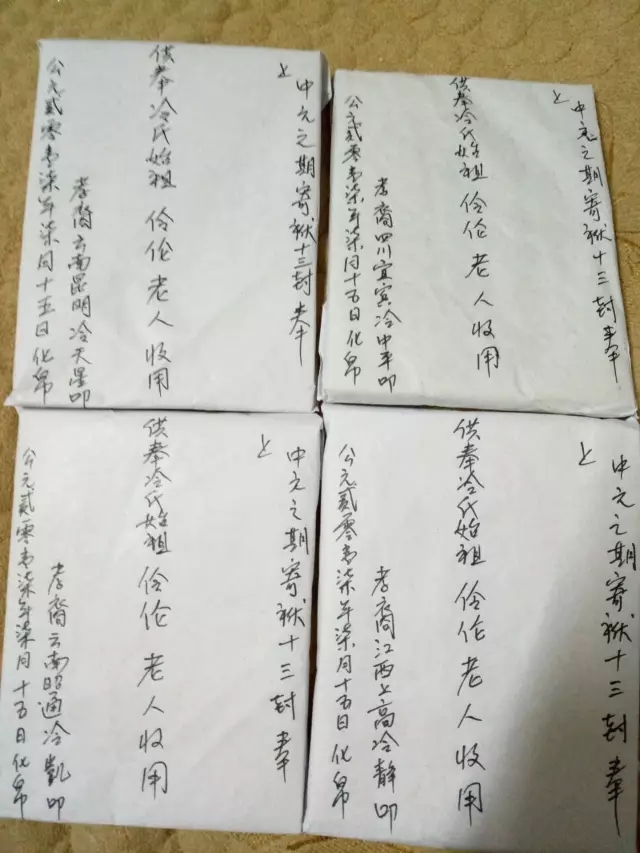 中元之期寄袱十三封奉
上
供奉冷氏始祖 伶伦 老人收用
孝裔云南昆明冷天星叩
公元贰零壹柒年柒月十五日化帛
中元之期寄袱十三封奉
上
供奉冷氏始祖 伶伦 老人收用
孝裔四川宜宾冷中平叩
公元贰零壹柒年柒月十五日化帛
中元之期寄袱十三封奉
上
供奉冷氏始祖 伶伦 老人收用
孝裔云南昭通冷凯叩
公元贰零壹柒年柒月十五日化帛
中元之期寄袱十三封奉
上
供奉冷氏始祖 伶伦 老人收用
孝裔江西上高冷静叩
公元贰零壹柒年柒月十五日化帛